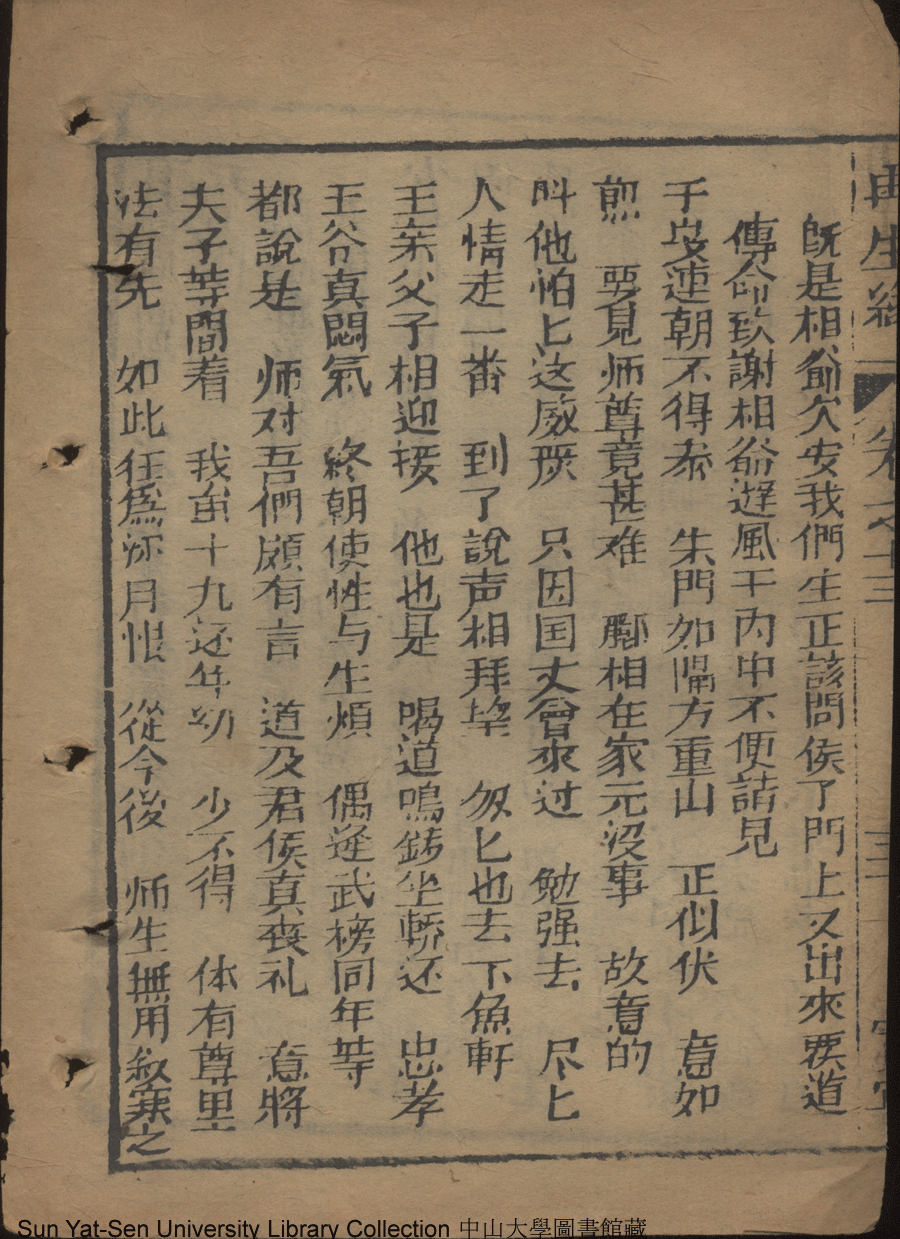 再生緣 卷之十三 三
既是相爺欠安我們生正該問侯了門上又出來要道
傳命致謝相爺避風干內中不便請見
于是連朝不得泰 朱門如隔方重山 正似伏 意如
煎 要見师尊竟甚难 酈相在家元没事 故意的
呌他怕匕这威 只因国丈曾來过 勉强去 尽匕
人情走一畨 到了說声相拜望 匆匕也去下魚軒
王亲父子相迎接 他也是 喝道鳴鑼坐轎还 忠孝
王爷真悶氣 終朝使性与生煩 偶逢武榜同年等
都說是 师对吾們頗有言 道及君侯真丧礼 意將
夫子等間着 我虽十九还年幼 少不得 体有尊里
法有先 如此狂為怀月恨 從今後 师生無用叙寒之
Sun Yat-Sen University Library Collection 中山大學圖書館藏